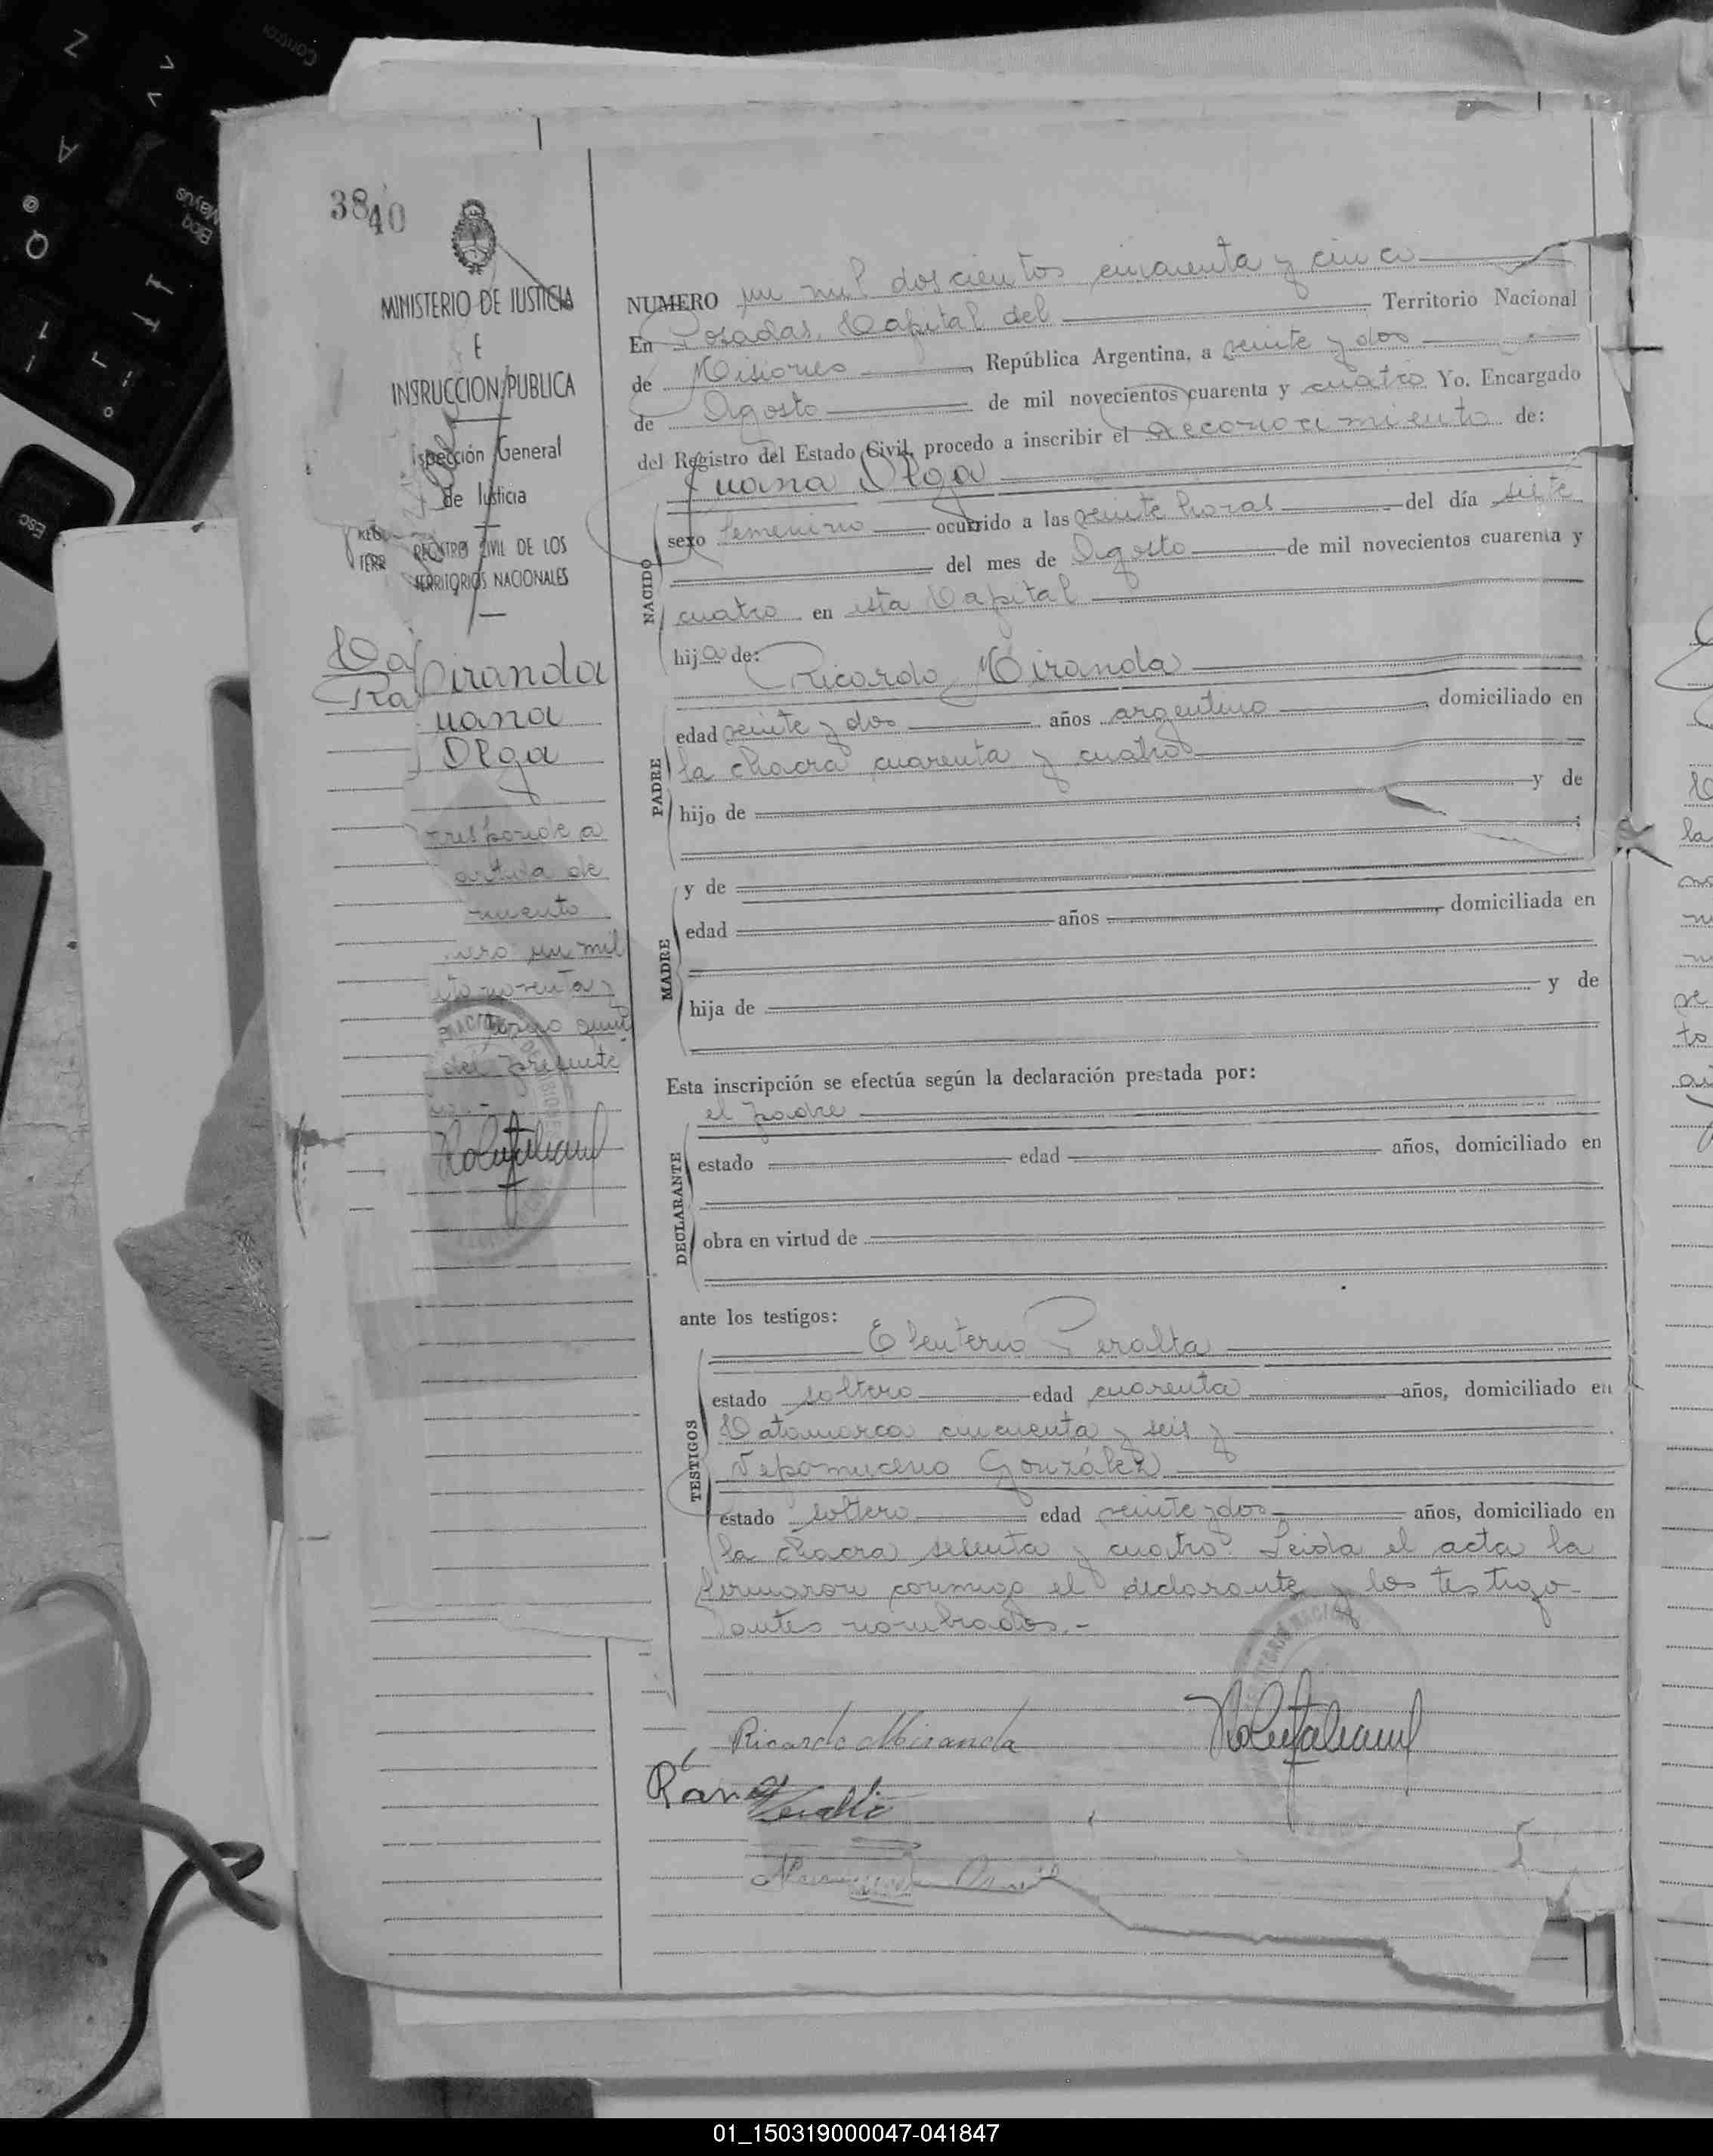 3840
MINISTERIO DE JUSTICIA
E
INSTRUCCION PUBLICA
Inspección General
de Justicia
REGISTRO CIVIL DE LOS
TERRITORIOS NACIONALES
Miranda
Juana
Olga
rresponde a
artida de
miento
mero un mil
nto noventa y
del presente
NUMERO un mil doscientos cincuenta y cinco
En Posadas, Capital del Territorio Nacional
de Misiones, República Argentina, a veinte y dos
de Agosto de mil novecientos cuarenta y cuatro Yo. Encargado
del Registro del Estado Civil, procedo a inscribir el Reconocimiento de:
Juana Olga
NACIDO
sexo femenino ocurrido a las veinte horas del día siete
del mes de Agosto de mil novecientos cuarenta y
cuatro en esta Capital
hija de:
PADRE
Ricardo Miranda
edad veinte y dos años argentino, domiciliado en
la chacra cuarenta y cuatro
hijo de y de
MADRE
y de
edad años, domiciliada en
hija de y de
Esta inscripción se efectúa según la declaración prestada por:
DECLARANTE
el padre
estado edad años, domiciliado en
obra en virtud de
ante los testigos:
TESTIGOS
Eleuterio Peralta
estado soltero edad cuarenta años, domiciliado en
Catamarca cincuenta y seis y
Nepomuceno González
estado soltero edad veinte y dos años, domiciliado en
la chacra sesenta y cuatro. Leida el acta la
firmaron conmigo el declarante y los testigo
antes nombrados.-
Ricardo Miranda
01_150319000047-041847